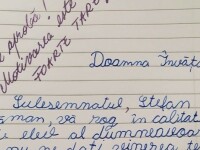 aprobă!
Motivarea este
FOARTE TARE!
Doamna Învăță
Subsemnatul, Ștefan
man, vă rog în calitate
elevă al dumneavoas
nu ne dați vinerea te